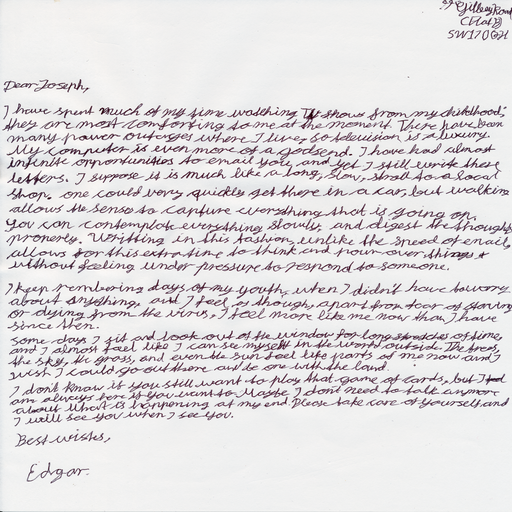 Gilbey Road
(Flat B)
SW17 0QH
Dear Joseph,
I have spent much of my time watching TV shows from my childhood;
they are most comforting to me at the moment. There have been
many power outages where I live, so television is a luxury.
My computer is even more of a godsend. I have had almost
infinite opportunities to email you, and yet I still write these
letters. I suppose it is much like a long, slow, stroll to a local
shop. one could very quickly get there in a car, but walking
allows the sense to capture everything that is going on.
You can contemplate everything slowly, and digest the thoughts
properly. Writting in this fashion, unlike the speed of email,
allows for this extra time to think and pour over things &
without feeling under pressure to respond to someone.
I keep rembering days of my youth, when I didn't have to worry
about anything, and I feel as though, apart from fear of starving
or dying from the virus, I feel more like me now than I have
since then.
some days I sit and look out of the window for long stretches of time,
and I almost feel like I can see myself in the world outside. The trees,
the sky, the grass, and even the sun feel like parts of me now and I
wish I could go out there and be one with the land.
I don't know if you still want to play that game of cards, but I
am always here if you want to. Maybe I don't need to talk anymore
about what is happening at my end. Please take care of yourself, and
I will see you when I see you.
Best wishes,
Edgar.